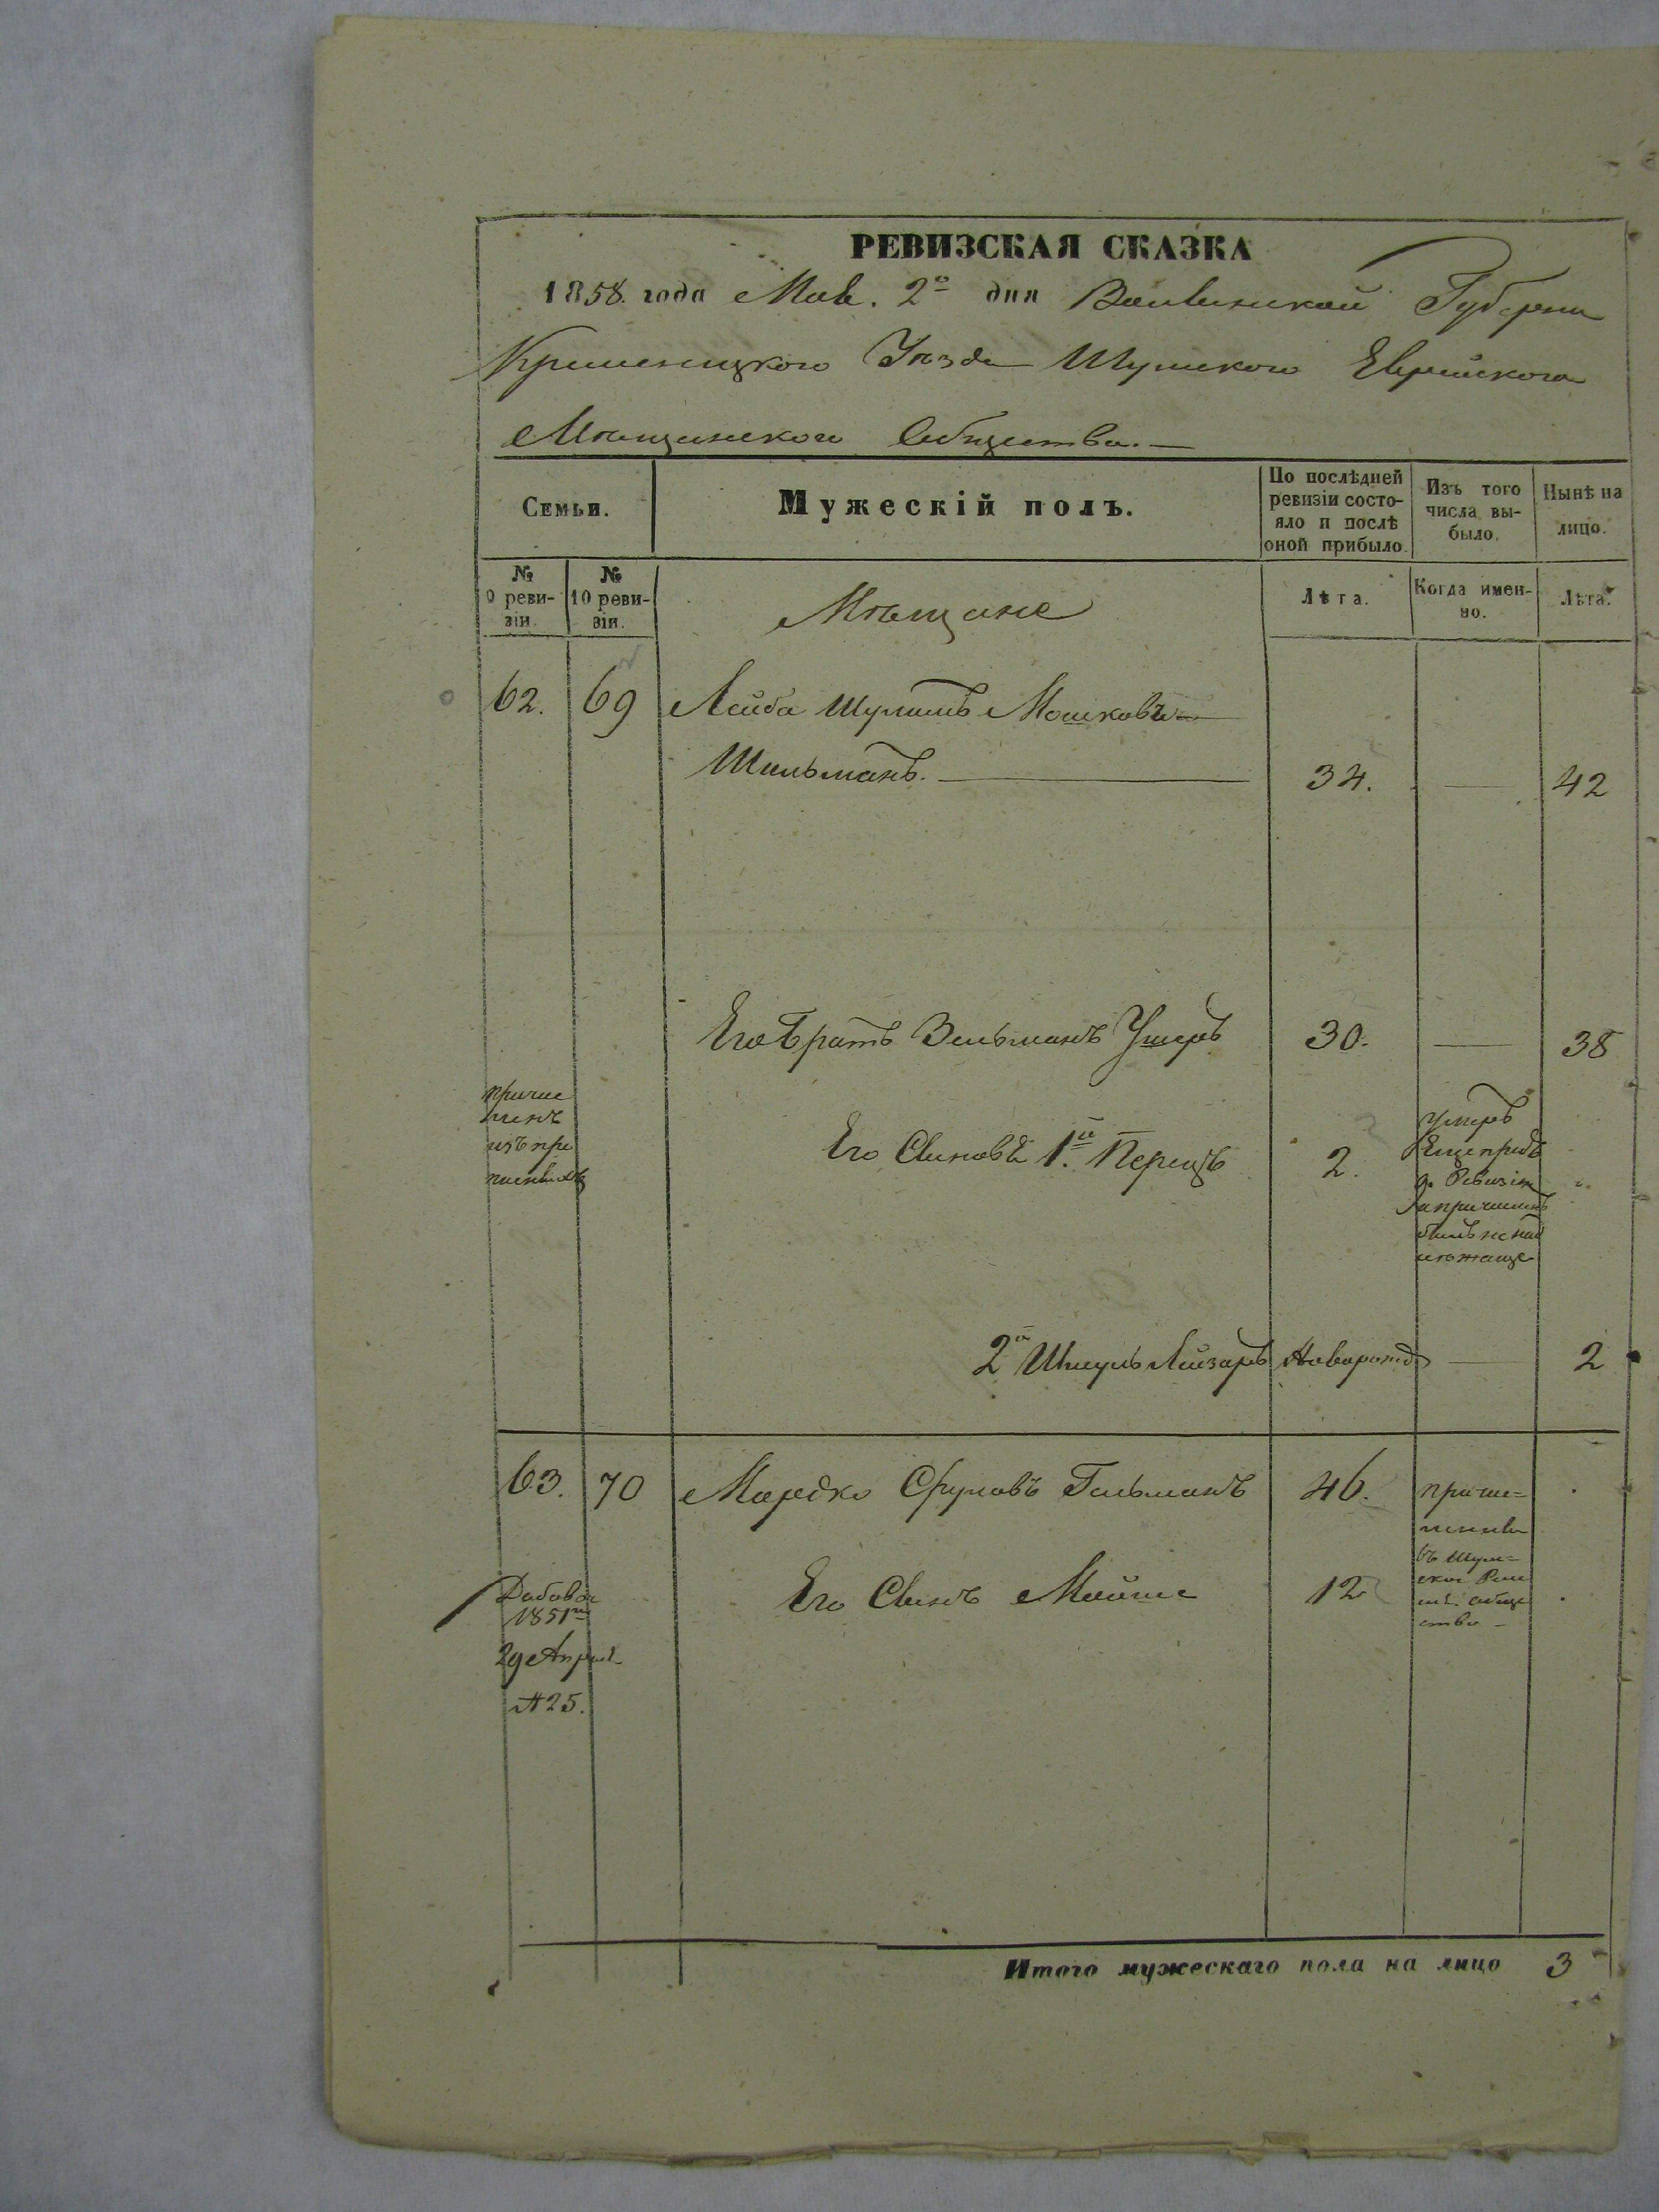 РЕВИЗСКАЯ СКАЗКА
1858. года Мая. 2º дня Волынской Губерніи
Кременецкого Уѣзда Шумского Еврейского
Мѣщанского Общества.—
Семьи.
Мужескій полъ.
По послѣдней
ревизіи состо-
яло и послѣ
оной прибыло.
Изъ того
числа вы-
было.
Нынѣ на
лицо.
№
9 реви-
зіи.
№
10 реви-
зіи.
Мѣщане
Лѣта.
Когда имен-
но.
Лѣта.
62. 69 Лейба Шулимъ Мошковъ
Шильманъ. 34. — 42
Его братъ Зельманъ Ушеръ 30. — 38
причис
ленъ
изъ про
писныхъ
Его Сыновья 1й Перецъ 2.
умеръ
Ревизіи
2й Шмуль Лейзаръ Новорожд — 2
63. 70 Мордко Сруловъ Гильманъ 46.
причис=
лены
въ Шум=
ское
обще
ство —
Его Сынъ Мойше 12
1851
29 Апрѣл
№25.
Итого мужескаго пола на лицо 3